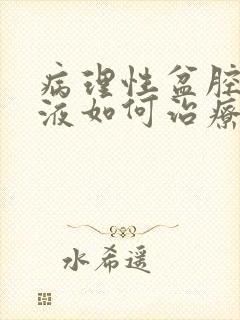 病理性盆腔
液如何治疗
水希遥